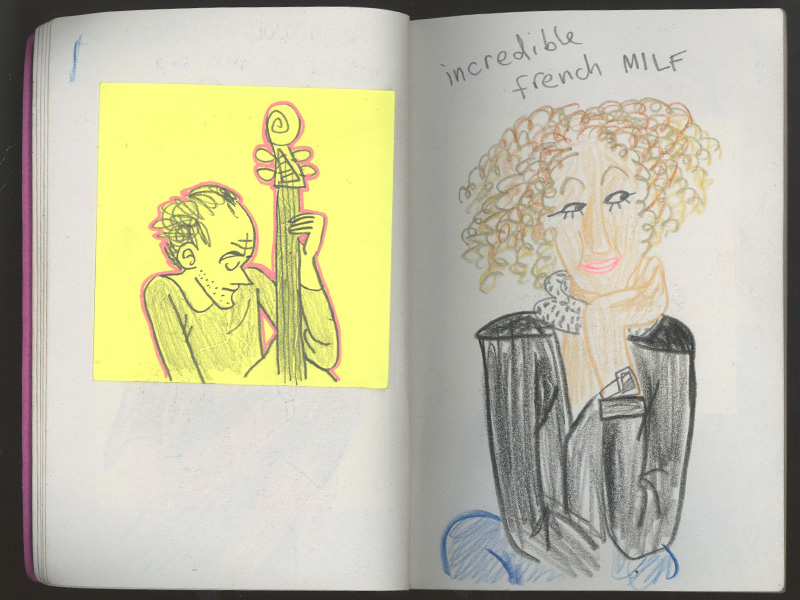 incredible
french MILF